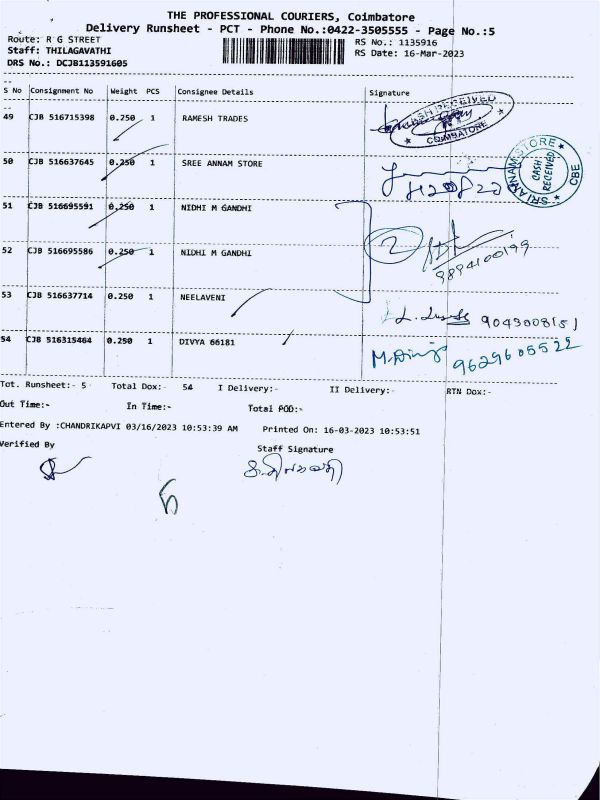 THE PROFESSIONAL COURIERS, Coimbatore
Delivery Runsheet - PCT - Phone No.:0422-3505555 - Page No.:5
Route: R G STREET
RS No.: 1135916
Staff: THILAGAVATHI
RS Date: 16-Mar-2023
DRS No.: DCJB113591605
S No Consignment No Weight PCS Consignee Details Signature
49 CJB 516715398 0.250 1 RAMESH TRADES
COIMBATORE
50 CJB 516637645 0.250 1 SREE ANNAM STORE
SRI ANNAM STORE CASH RECEIVED CBE
51 CJB 516695591 0.250 1 NIDHI M GANDHI
2
9894100199
52 CJB 516695586 0.250 1 NIDHI M GANDHI
53 CJB 516637714 0.250 1 NEELAVENI
9043008151
54 CJB 516315464 0.250 1 DIVYA 66181
9629605522
Tot. Runsheet:- 5 Total Dox:- 54 I Delivery:- II Delivery:- RTN Dox:-
Out Time:- In Time:- Total POD:-
Entered By :CHANDRIKAPVI 03/16/2023 10:53:39 AM Printed On: 16-03-2023 10:53:51
Verified By
Staff Signature